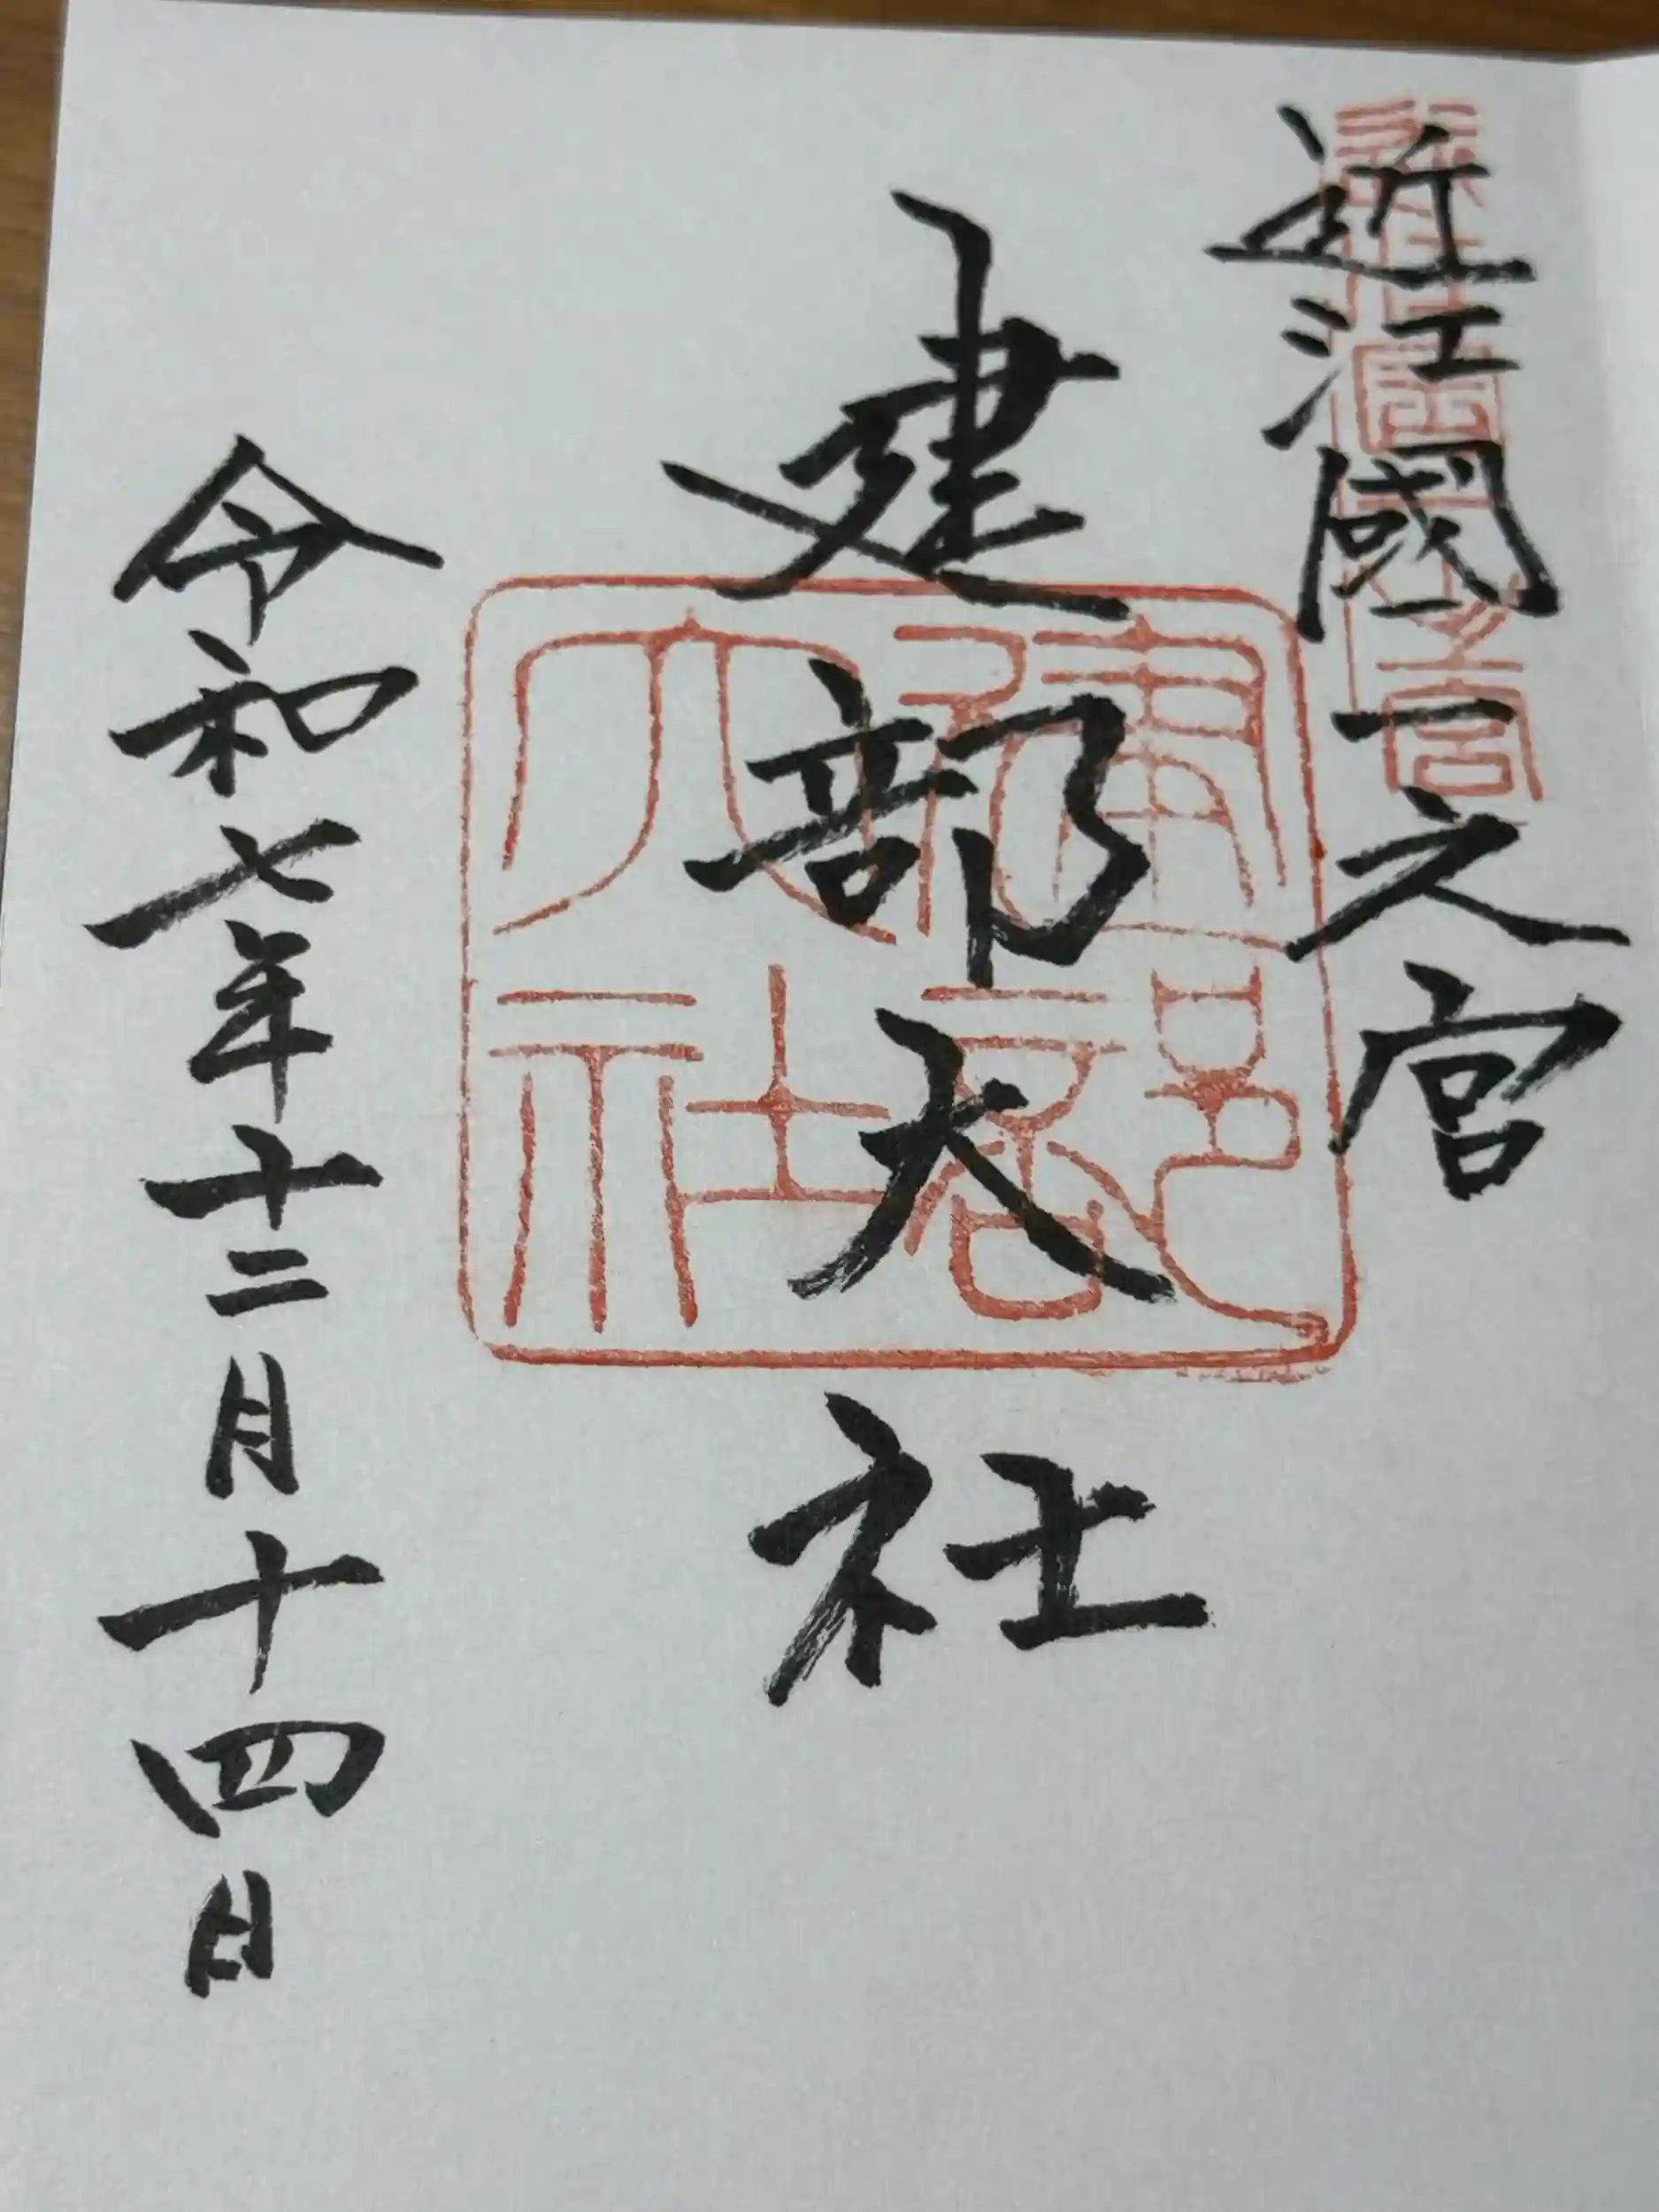 近江國一之宮
建部大社
建部大社
令和七年十二月十四日